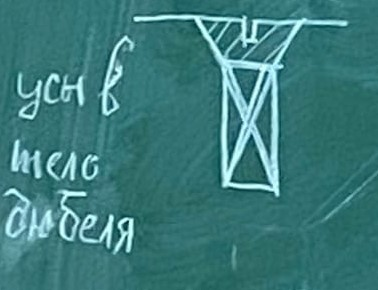 усы в
тело
дюбеля